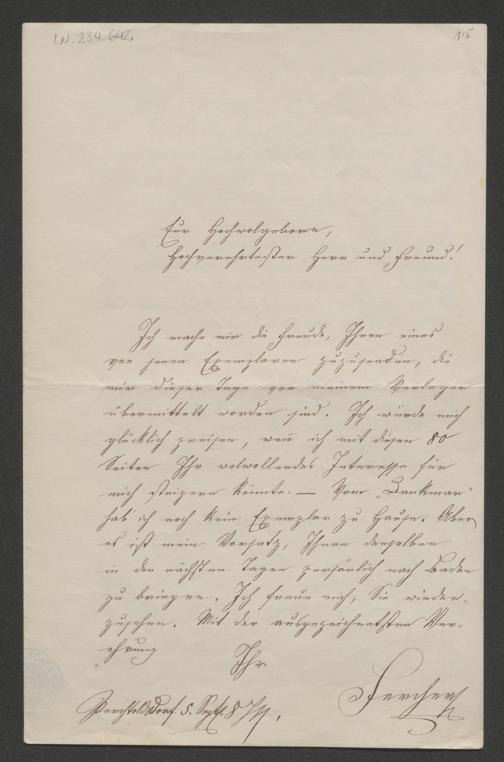 I.N. 234 642.
15
Euer Hochwolgeboren,
Hochverehrtester Herr und Freund!
Ich mache mir die Freude, Ihnen eines
von jenen Exemplaren zuzusenden, die
mir dieser Tage von meinem Verleger
übermittelt worden sind. Ich würde mich
glücklich preisen, wen̄ ich mit diesen 80
Seiten Ihr wolwollendes Interesse für
mich steigern könnte. — Vom „Dankmar“
hab ich noch kein Exemplar zu Hause. Aber
es ist mein Vorsatz, Ihnen denselben
in den nächsten Tagen persönlich nach Baden
zu bringen. Ich freue mich, Sie wieder-
zusehen. Mit der ausgezeichnetsten Ver-
ehrung
Ihr
Fercher
5. Sept.